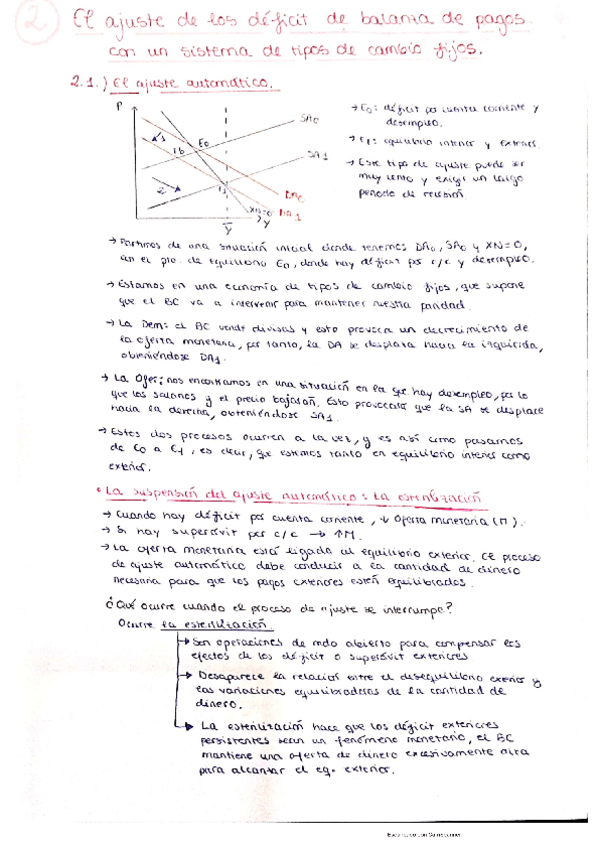 2 El ajuste de los déficit de balanza de pagos
con un sistema de tipos de cambio fijos.
2.1.) El ajuste automático.
P
SA0
SA1
E0
DA0
DA1
XN=0
Y
Y
→ E0: déficit por cuenta corriente y
desempleo.
→ E1: equilibrio interior y exterior.
→ Este tipo de ajuste puede ser
muy lento y exigir un largo
periodo de recesión.
→ Partimos de una situación inicial donde tenemos DA0, SA0 y XN=0,
en el pto. de equilibrio E0, donde hay déficit por c/c y desempleo.
→ Estamos en una economía de tipos de cambio fijos, que supone
que el BC va a intervenir para mantener nuestra paridad.
→ La Dem: el BC vende divisas y esto provoca un decrecimiento de
la oferta monetaria, por tanto, la DA se desplaza hacia la izquierda,
obteniéndose DA1.
→ La Ofer: nos encontramos en una situación en la que hay desempleo, por lo
que los salarios y el precio bajarán. Esto provocará que la SA se desplace
hacia la derecha, obteniéndose SA1.
→ Estos dos procesos ocurren a la vez, y es así como pasamos
de E0 a E1, es decir, que estemos tanto en equilibrio interior como
exterior.
• La suspensión del ajuste automático: La esterilización
→ Cuando hay déficit por cuenta corriente, ↓ Oferta monetaria (M).
→ Si hay superávit por c/c → ↑M.
→ La oferta monetaria está ligada al equilibrio exterior. El proceso
de ajuste automático debe conducir a la cantidad de dinero
necesaria para que los pagos exteriores estén equilibrados.
¿Qué ocurre cuando el proceso de ajuste se interrumpe?
Ocurre la esterilización.
→ Son operaciones de mdo abierto para compensar los
efectos de los déficit o superávit exteriores
→ Desaparece la relación entre el desequilibrio exterior y
las variaciones equilibradoras de la cantidad de
dinero.
→ La esterilización hace que los déficit exteriores
persistentes sean un fenómeno monetario, el BC
mantiene una oferta de dinero excesivamente alta
para alcanzar el eq. exterior.
Escaneado con CamScanner